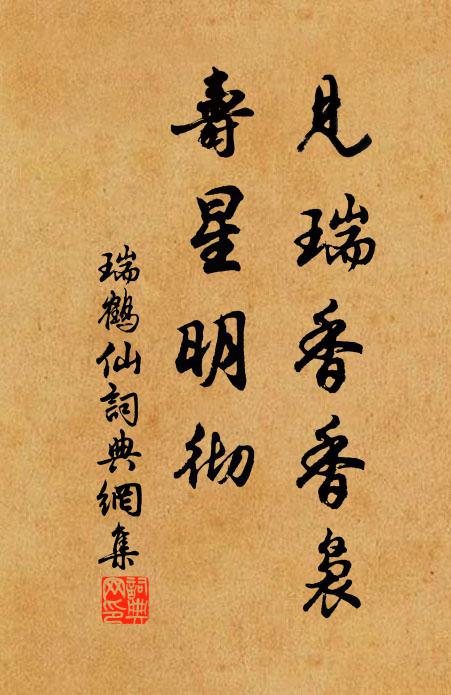 見瑞香香裊
壽星明彻
瑞鶴仙詞典網集
詞典网印